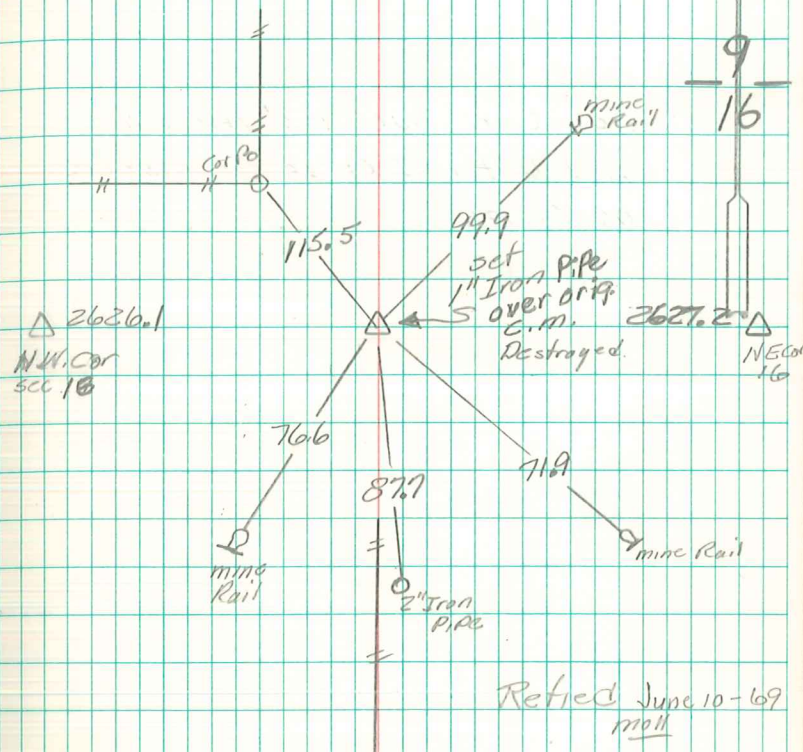 9
16
mine
Rail
Cor Po
99.9
115.5
set
1" Iron PiPe
over orig.
C.M.
Destroyed.
2626.1
N.W. Cor
sec. 16
2627.2
NECor
16
76.6
71.9
87.7
mine Rail
mine
Rail
2" Iron
PiPe
Retied June 10-69
moll